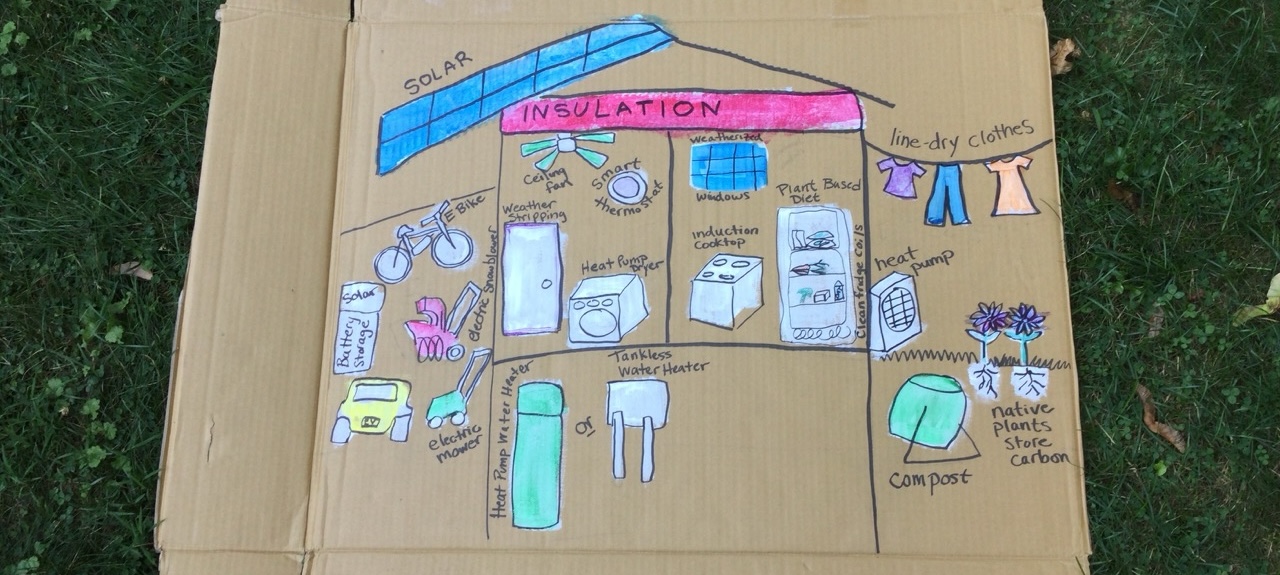 SOLAR
INSULATION
Ceiling
fan
Smart
thermostat
Weatherized
windows
line-dry clothes
E Bike
Weather
Stripping
Heat Pump
Dryer
induction
Cooktop
Plant Based
Diet
Clean fridge Coils
heat
pump
Solar
Battery
Storage
electric Snowblower
EV
electric
mower
Heat Pump Water Heater
or
Tankless
Water Heater
compost
native
plants
store
carbon